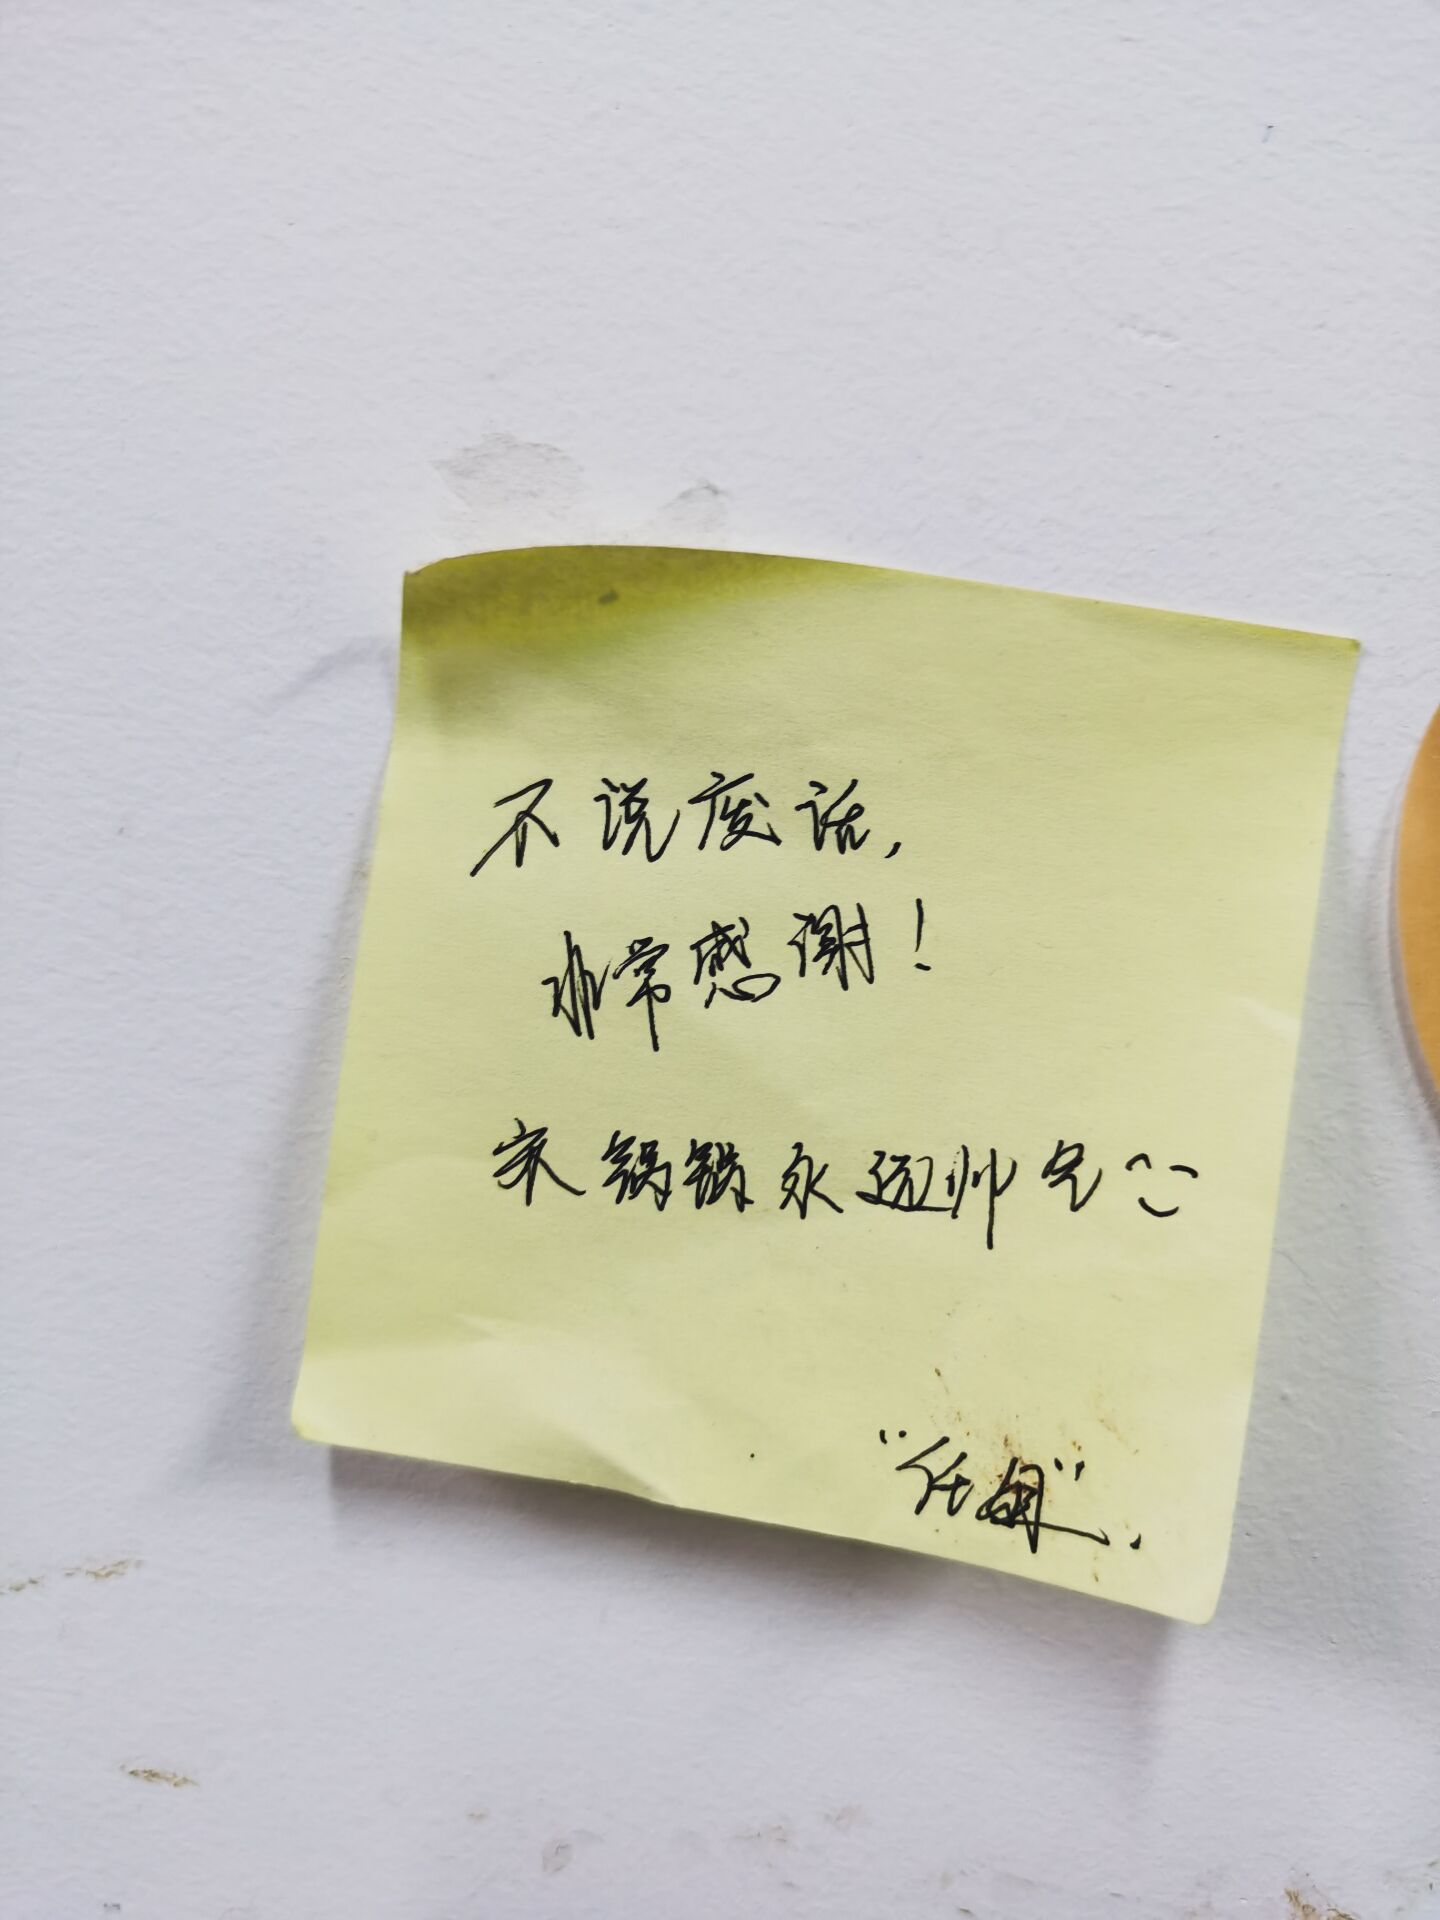 不说废话,
非常感谢!
宋锅锅永远帅气
"任